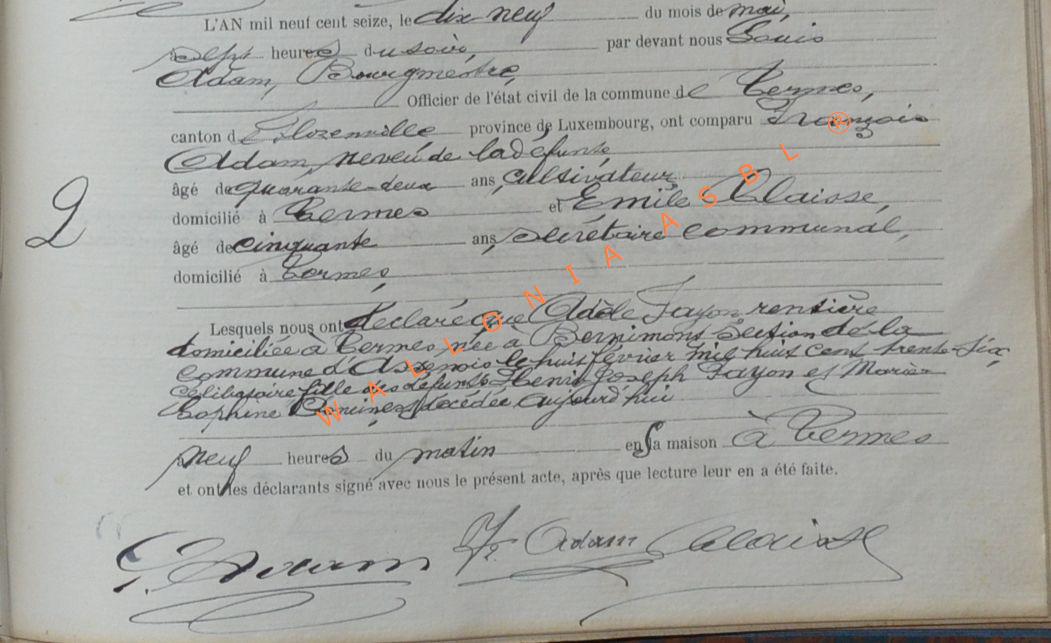 L'AN mil neuf cent seize, le dix neuf du mois de mai,
à sept heures du soir, par devant nous Louis
Adam, Bourgmestre,
Officier de l'état civil de la commune de Termes,
canton d province de Luxembourg, ont comparu François
Adam, neveu de la défunte
âgé de quarante-deux ans, cultivateur
domicilié à Termes et Emile Claisse,
âgé de cinquante ans, secrétaire communal,
domicilié à Termes,
Lesquels nous ont déclaré que Adèle Fayon rentière
domiciliée à Termes née à Bernimont Section de la
commune d'Assenois le huit février mil huit cent trente-six,
célibataire fille des défunts Henri Joseph Fayon et Marie
Sophine décédée aujourd'hui
neuf heures du matin en sa maison à Termes
et ont les déclarants signé avec nous le présent acte, après que lecture leur en a été faite.
L. Adam Fr. Adam Claisse
2
WALLONIA ASBL ®